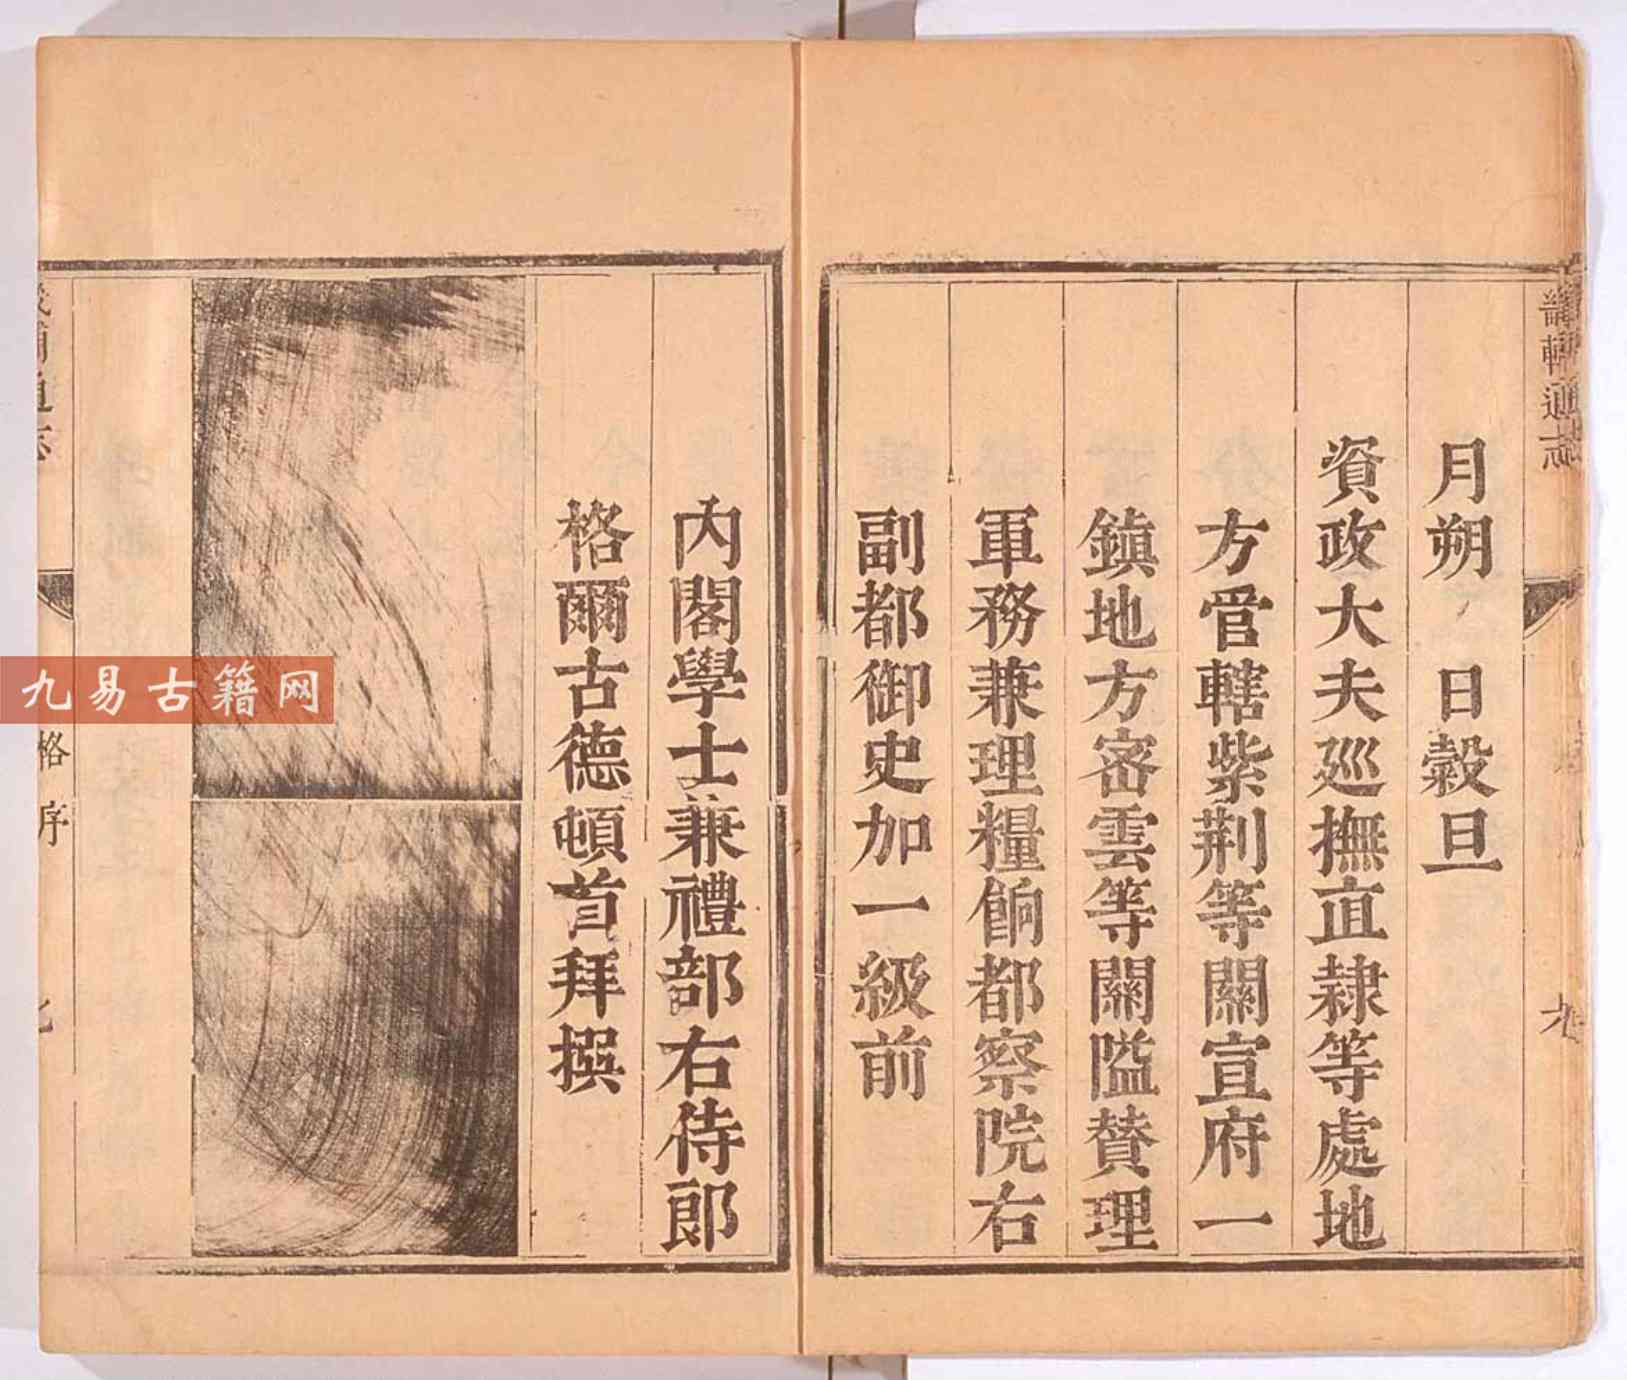 月朔　日穀旦
資政大夫巡撫直隷等處地
方官轄紫荆等關宣府一
鎮地方宻雲等關隘賛理
軍務兼理糧餉都察院右
副都御史加一級前
内閣學士兼禮部右侍郎
格爾古德頓首拜撰
畿輔通志
格序
九
九易古籍网